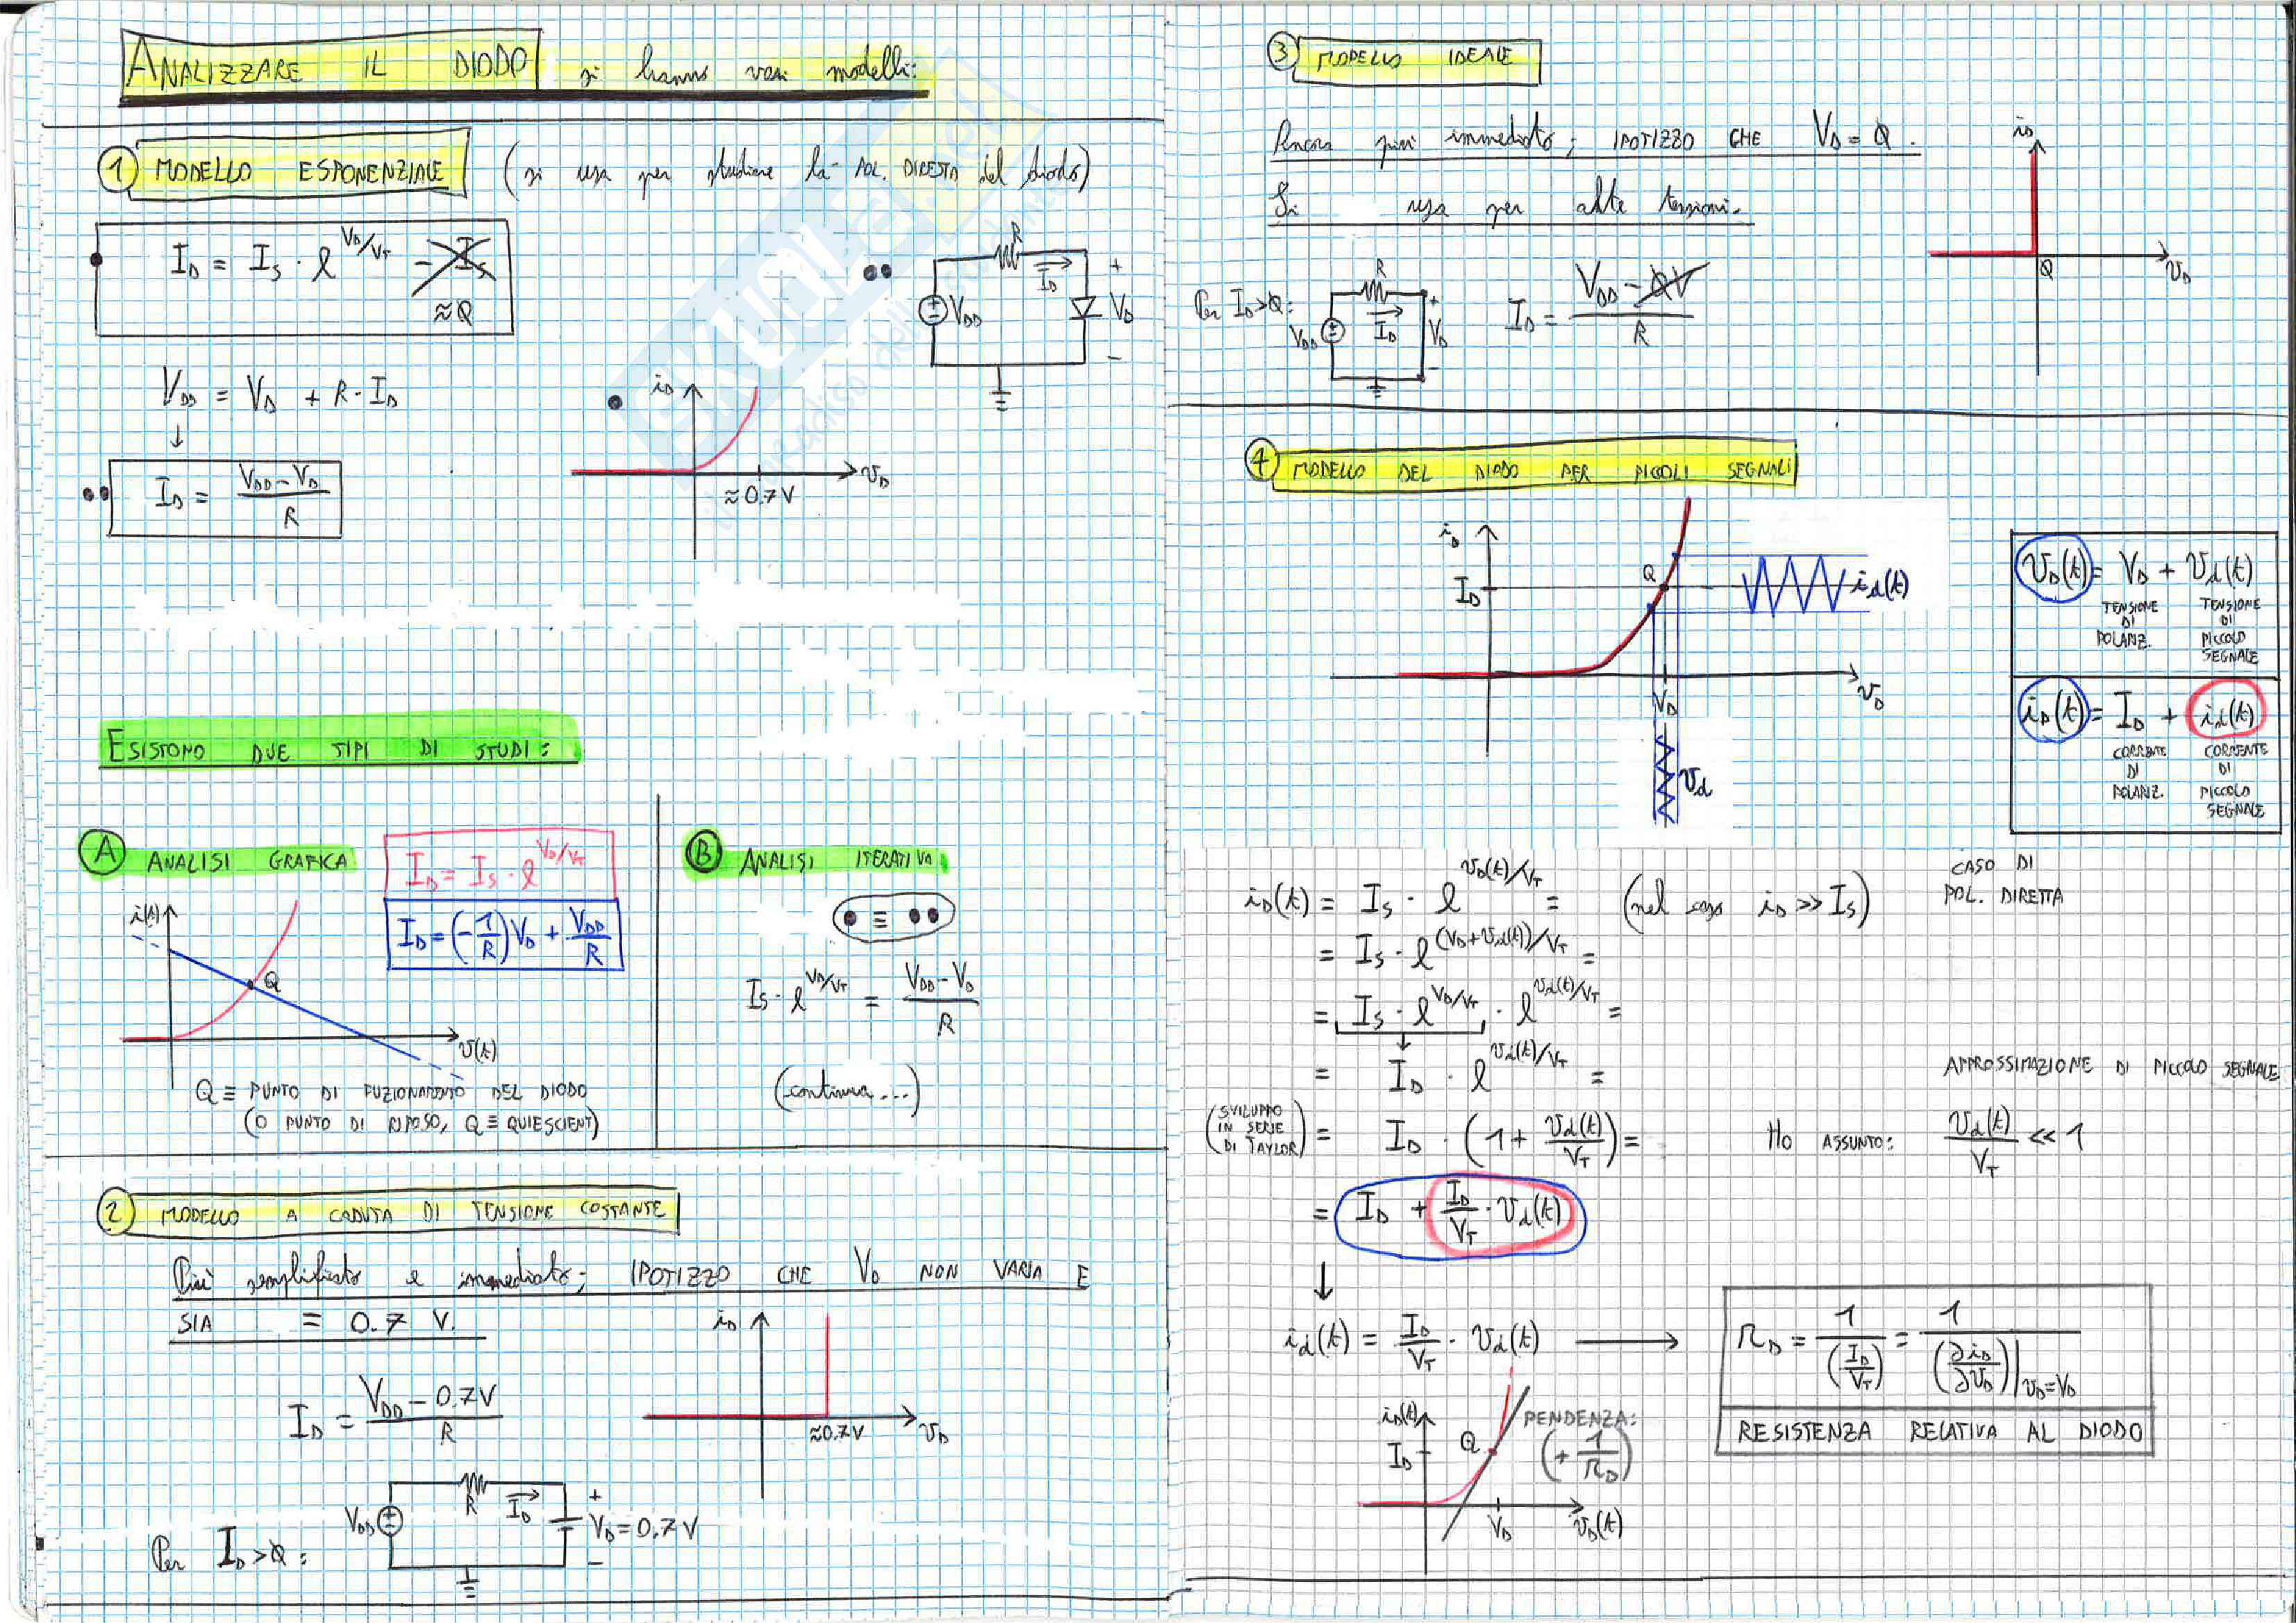 ANALIZZARE IL DIODO si hanno vari modelli:
1 MODELLO ESPONENZIALE (si usa per studiare la POL. DIRETTA del diodo)
I_D = I_S · e^(V_D/V_T) - I_S
≈ 0
V_DD = V_D + R · I_D
↓
I_D = (V_DD - V_D)/R
R
I_D
V_DD
+
V_D
-
i_D
≈ 0.7 V
v_D
ESISTONO DUE TIPI DI STUDI:
A ANALISI GRAFICA
I_D = I_S · e^(V_D/V_T)
I_D = (-1/R) V_D + V_DD/R
i(t)
Q
v(t)
Q ≡ PUNTO DI FUZIONAMENTO DEL DIODO
(O PUNTO DI RIPOSO, Q ≡ QUIESCIENT)
B ANALISI ITERATIVA
● ≡ ●●
I_S · e^(V_D/V_T) = (V_DD - V_D)/R
(continua...)
2 MODELLO A CADUTA DI TENSIONE COSTANTE
Più semplificato e immediato; IPOTIZZO CHE V_D NON VARIA E
SIA = 0.7 V.
I_D = (V_DD - 0.7V)/R
i_D
≈0.7V
v_D
Per I_D > 0:
V_DD
R
I_D
+
V_D = 0.7 V
-
3 MODELLO IDEALE
Ancora più immediato; IPOTIZZO CHE V_D = 0.
Si usa per alte tensioni.
i_D
0
v_D
Per I_D > 0:
V_DD
R
I_D
+
V_D
-
I_D = (V_DD - 0V)/R
4 MODELLO DEL DIODO PER PICCOLI SEGNALI
i_D
I_D
Q
i_d(t)
V_D
v_D
v_d
v_D(t) = V_D + v_d(t)
TENSIONE DI POLARIZ.
TENSIONE DI PICCOLO SEGNALE
i_D(t) = I_D + i_d(t)
CORRENTE DI POLARIZ.
CORRENTE DI PICCOLO SEGNALE
i_D(t) = I_S · e^(v_D(t)/V_T) = (nel caso i_D >> I_S)
CASO DI
POL. DIRETTA
= I_S · e^((V_D + v_d(t))/V_T) =
= I_S · e^(V_D/V_T) · e^(v_d(t)/V_T) =
↓
= I_D · e^(v_d(t)/V_T) =
APPROSSIMAZIONE DI PICCOLO SEGNALE
(SVILUPPO IN SERIE DI TAYLOR) = I_D · (1 + v_d(t)/V_T) =
HO ASSUNTO: v_d(t)/V_T << 1
= I_D + I_D/V_T · v_d(t)
↓
i_d(t) = I_D/V_T · v_d(t) →
r_D = 1/(I_D/V_T) = 1/(∂i_D/∂v_D)|v_D=V_D
RESISTENZA RELATIVA AL DIODO
i_D(t)
I_D
Q
PENDENZA:
(+ 1/r_D)
V_D
v_D(t)